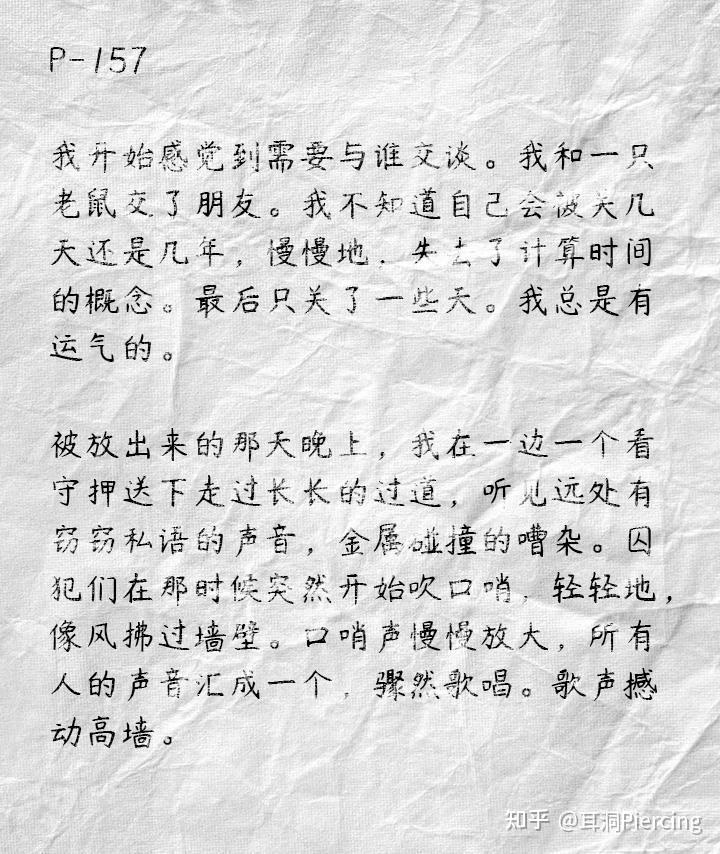 P-157
我开始感觉到需要与谁交谈。我和一只
老鼠交了朋友。我不知道自己会被关几
天还是几年，慢慢地，失去了计算时间
的概念。最后只关了一些天。我总是有
运气的。
被放出来的那天晚上，我在一边一个看
守押送下走过长长的过道，听见远处有
窃窃私语的声音，金属碰撞的嘈杂。囚
犯们在那时候突然开始吹口哨，轻轻地，
像风拂过墙壁。口哨声慢慢放大，所有
人的声音汇成一个，骤然歌唱。歌声撼
动高墙。
知乎 @耳洞Piercing